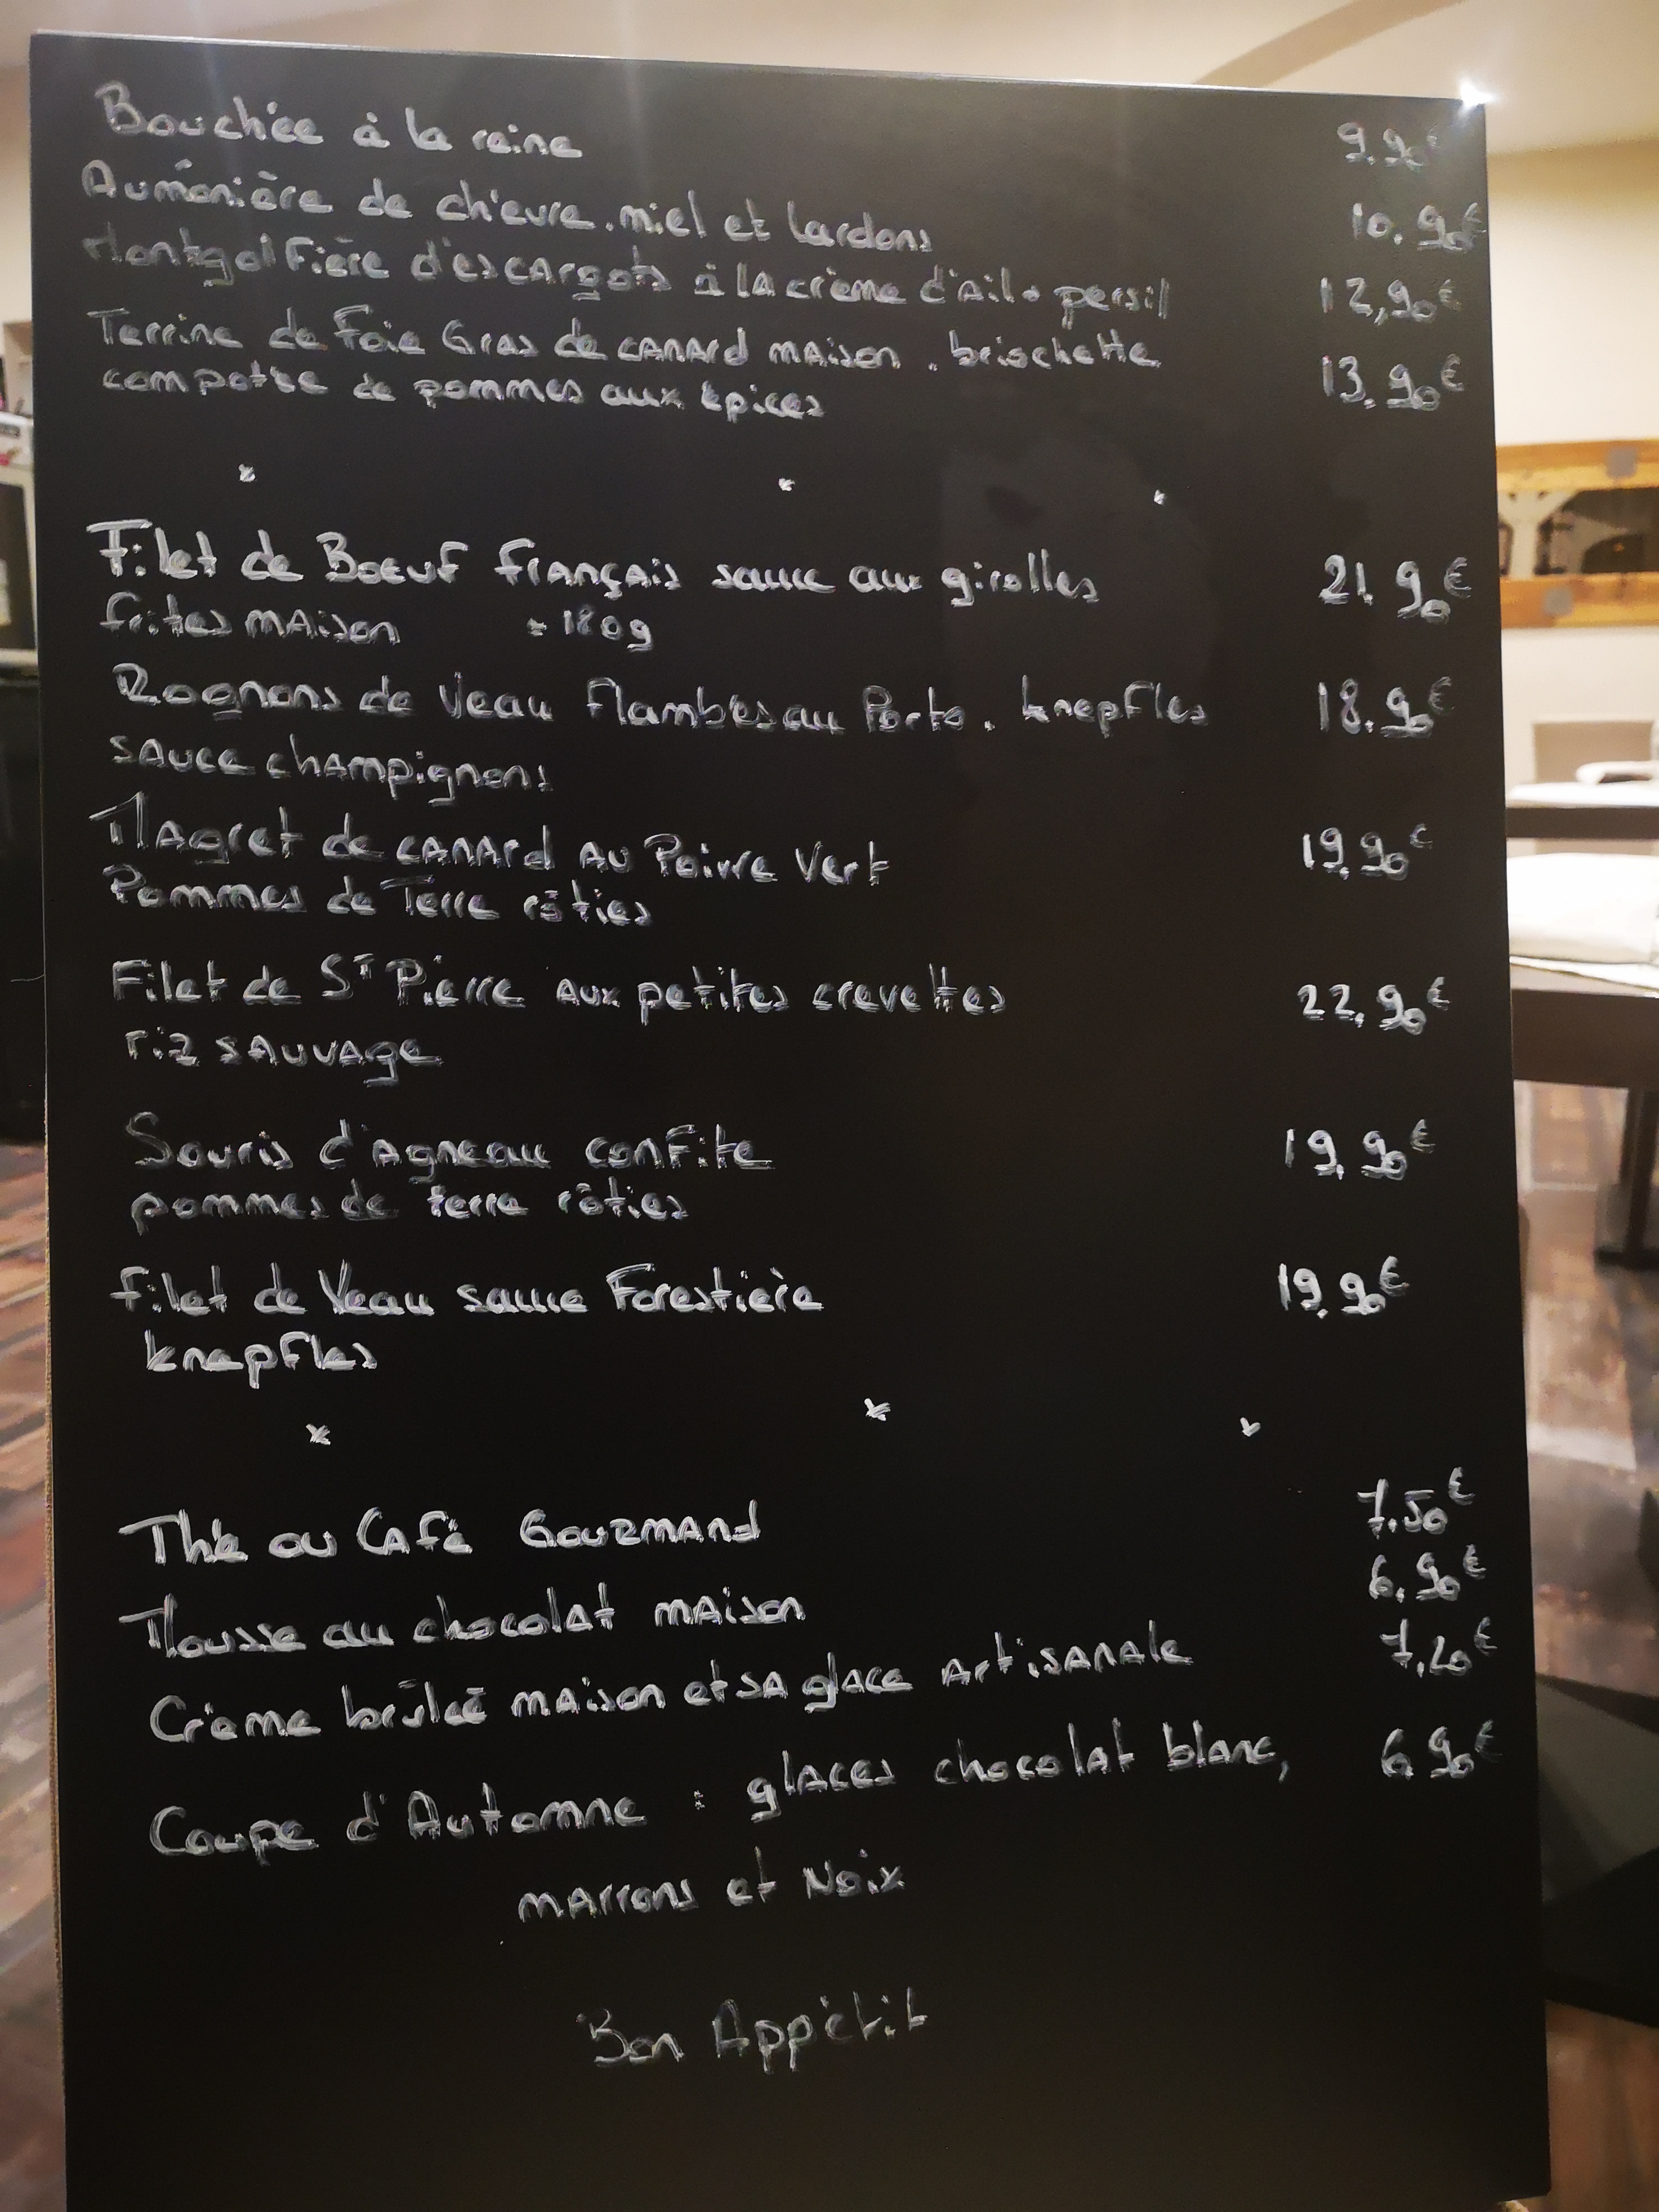 Bouchée à la reine 9.90€
Aumônière de chèvre. miel et lardons 10.90€
Montgolfière d'escargots à la crème d'ail. persil 12,90€
Terrine de Foie Gras de canard maison. briochette
compotée de pommes aux épices 13.90€
* * *
Filet de Boeuf français sauce aux girolles 21.90€
frites maison ≈ 180g
Rognons de Veau Flambés au Porto. knepfles 18.90€
sauce champignons
Magret de canard au Poivre Vert 19,90€
Pommes de Terre rôties
Filet de St Pierre aux petites crevettes 22,90€
riz sauvage
Souris d'agneau confite 19,90€
pommes de terre rôties
filet de Veau sauce Forestière 19,90€
knepfles
* * *
Thé ou Café Gourmand 7.50€
Mousse au chocolat maison 6.90€
Crème brûlée maison et sa glace artisanale 7,20€
Coupe d'Automne : glaces chocolat blanc, 6.90€
marrons et Noix
Bon Appétit